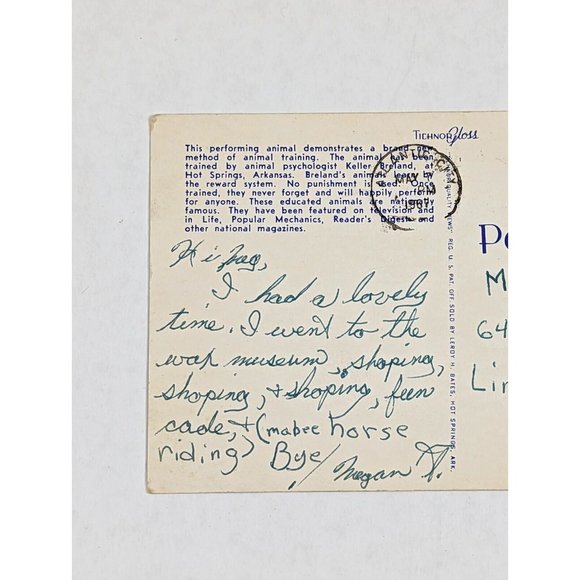 TICHNOR Gloss
This performing animal demonstrates a brand new
method of animal training. The animal has been
trained by animal psychologist Keller Breland, at
Hot Springs, Arkansas. Breland's animals learn by
the reward system. No punishment is used. Once
trained, they never forget and will happily perform
for anyone. These educated animals are nationally
famous. They have been featured on television and
in Life, Popular Mechanics, Reader's Digest and
other national magazines.
MAY
PM
1967
QUALITY VIEWS" REG. U. S. PAT. OFF. SOLD BY LEROY H. BATES, HOT SPRINGS, ARK.
Po
M
64
Lin
Hi
I had a lovely
time. I went to the
wax museum, shoping,
shoping, + shoping, fun
cade, + (mabee horse
riding) Bye/ Megan